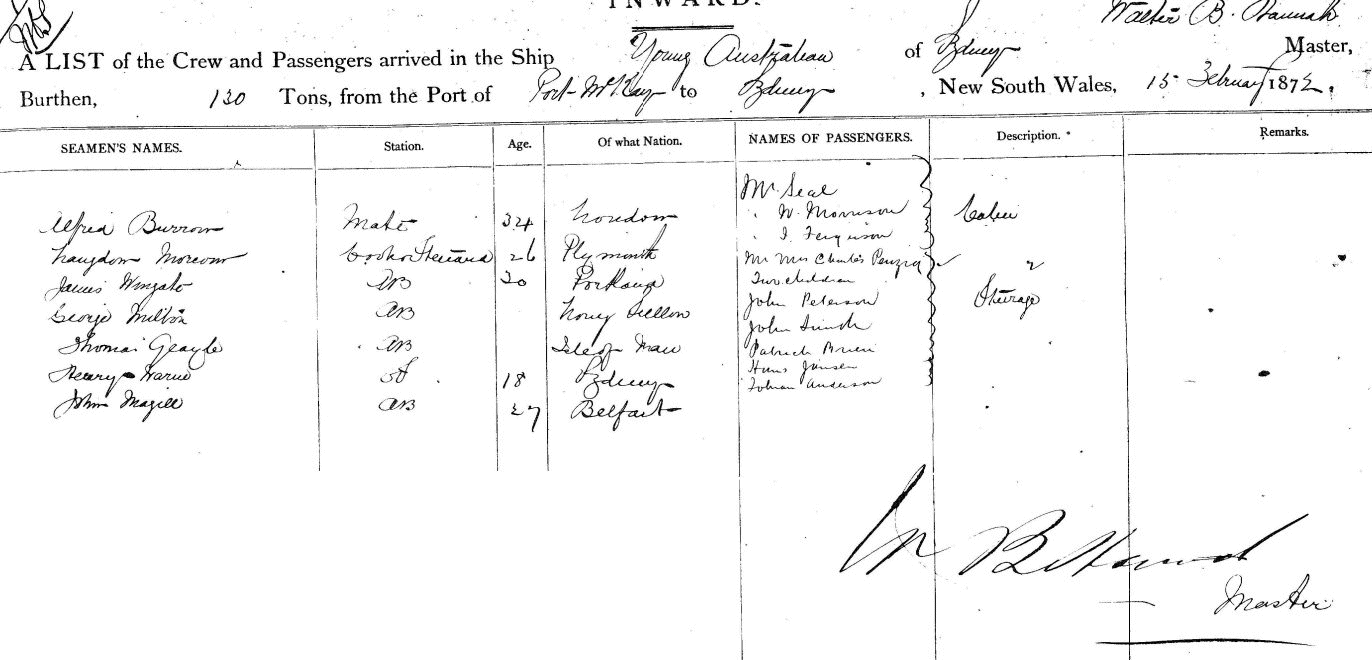 INWARD.
Walter B. Hannah
A LIST of the Crew and Passengers arrived in the Ship Young Australian of Sydney Master,
Burthen, 130 Tons, from the Port of Port McKay to Sydney, New South Wales, 15 February 1872.
SEAMEN'S NAMES. Station. Age. Of what Nation. NAMES OF PASSENGERS. Description. Remarks.
Mr Seal
Alfred Burrow Mate 34 London " W. Morrison Cabin
" J. Ferguson
Langdon Cook & Steward 26 Plymouth Mr Mrs Charles "
James Wingate AB 30 Two children
John Peterson Steerage
George Milton AB
John Smith
Thomas AB Isle of Man Patrick Brien
Hans Jansen
Henry Warne 18 Sydney Anderson
John Magill AB 27 Belfast
W B Hannah
Master